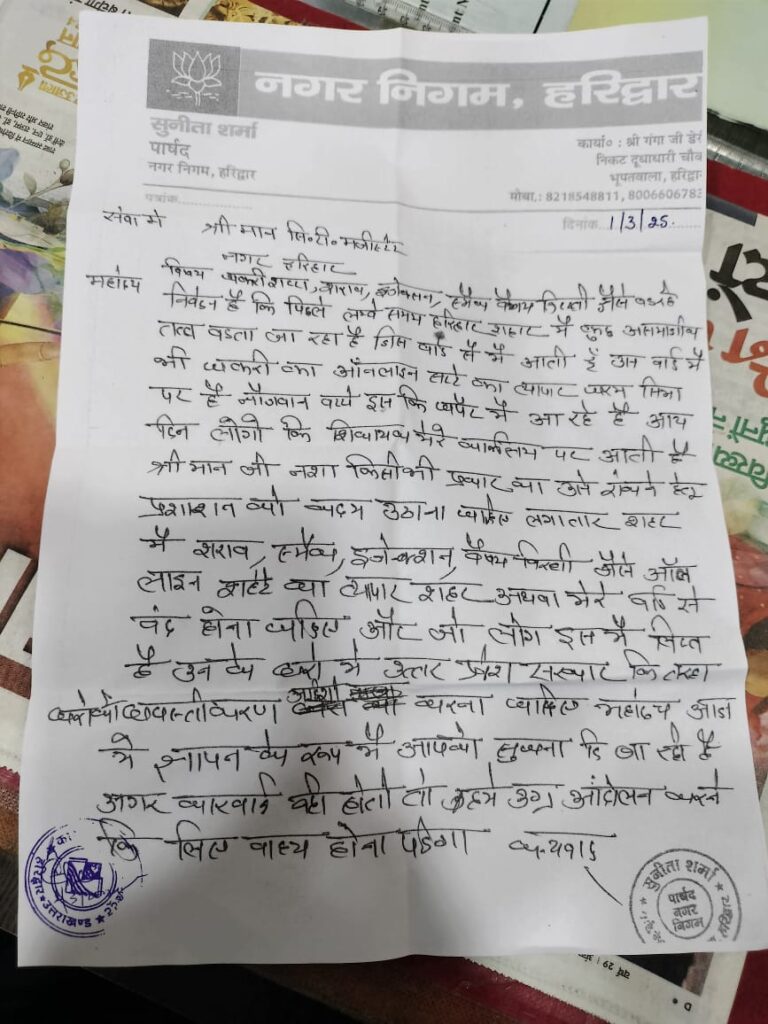 नगर निगम, हरिद्वार
सुनीता शर्मा
पार्षद
नगर निगम, हरिद्वार
कार्या० : श्री गंगा जी डेरी
निकट दूधाधारी चौक
भूपतवाला, हरिद्वार
मोबा.: 8218548811, 800660678
पत्रांक
दिनांक 1/3/25
सेवा मे श्री मान सि.टी. मजीस्टेट
नगर हरिद्वार
महोदय विषय शराब, इन्जेक्सन, स्मैक जैसे
निवेदन है कि पिछले लम्बे समय हरिद्वार शहर मै कुछ असमाजीक
तत्व बडता जा रहा है जिस वार्ड से मै आती हूँ उस वार्ड मै
भी चकरी का ऑनलाइन सटटे का व्यापार चरम सिमा
पर है नौजवान बच्चे इस कि चपेट मै आ रहे है आय
दिन लोगो कि शिकायत मेरे कार्यालय पर आती है
श्री मान जी नशा किसीभी प्रकार का उसे रोकने हेतु
प्रशाशन को कदम उठाना चाहिए लगातार शहर
मै शराब, स्मैक, इन्जेक्शन, जैसे ऑन
लाइन का व्यापार शहर अथवा मेरे वार्ड से
बंद होना चाहिए और जो लोग इस मै लिप्त
है उन के घरो मे उत्तर प्रदेश सरकार कि तरह
घरोको ध्वस्तीकरण करना चाहिए महोदय आज
मे ज्ञापन के रूप मै आपको सुचना दि जा रही है
अगर कारवाई नही होती तो हमे उग्र आंदोलन करने
कि लिए बाध्य होना पडेगा धन्यवाद
हरिद्वार उत्तराखण्ड
सुनीता शर्मा
पार्षद
नगर
निगम